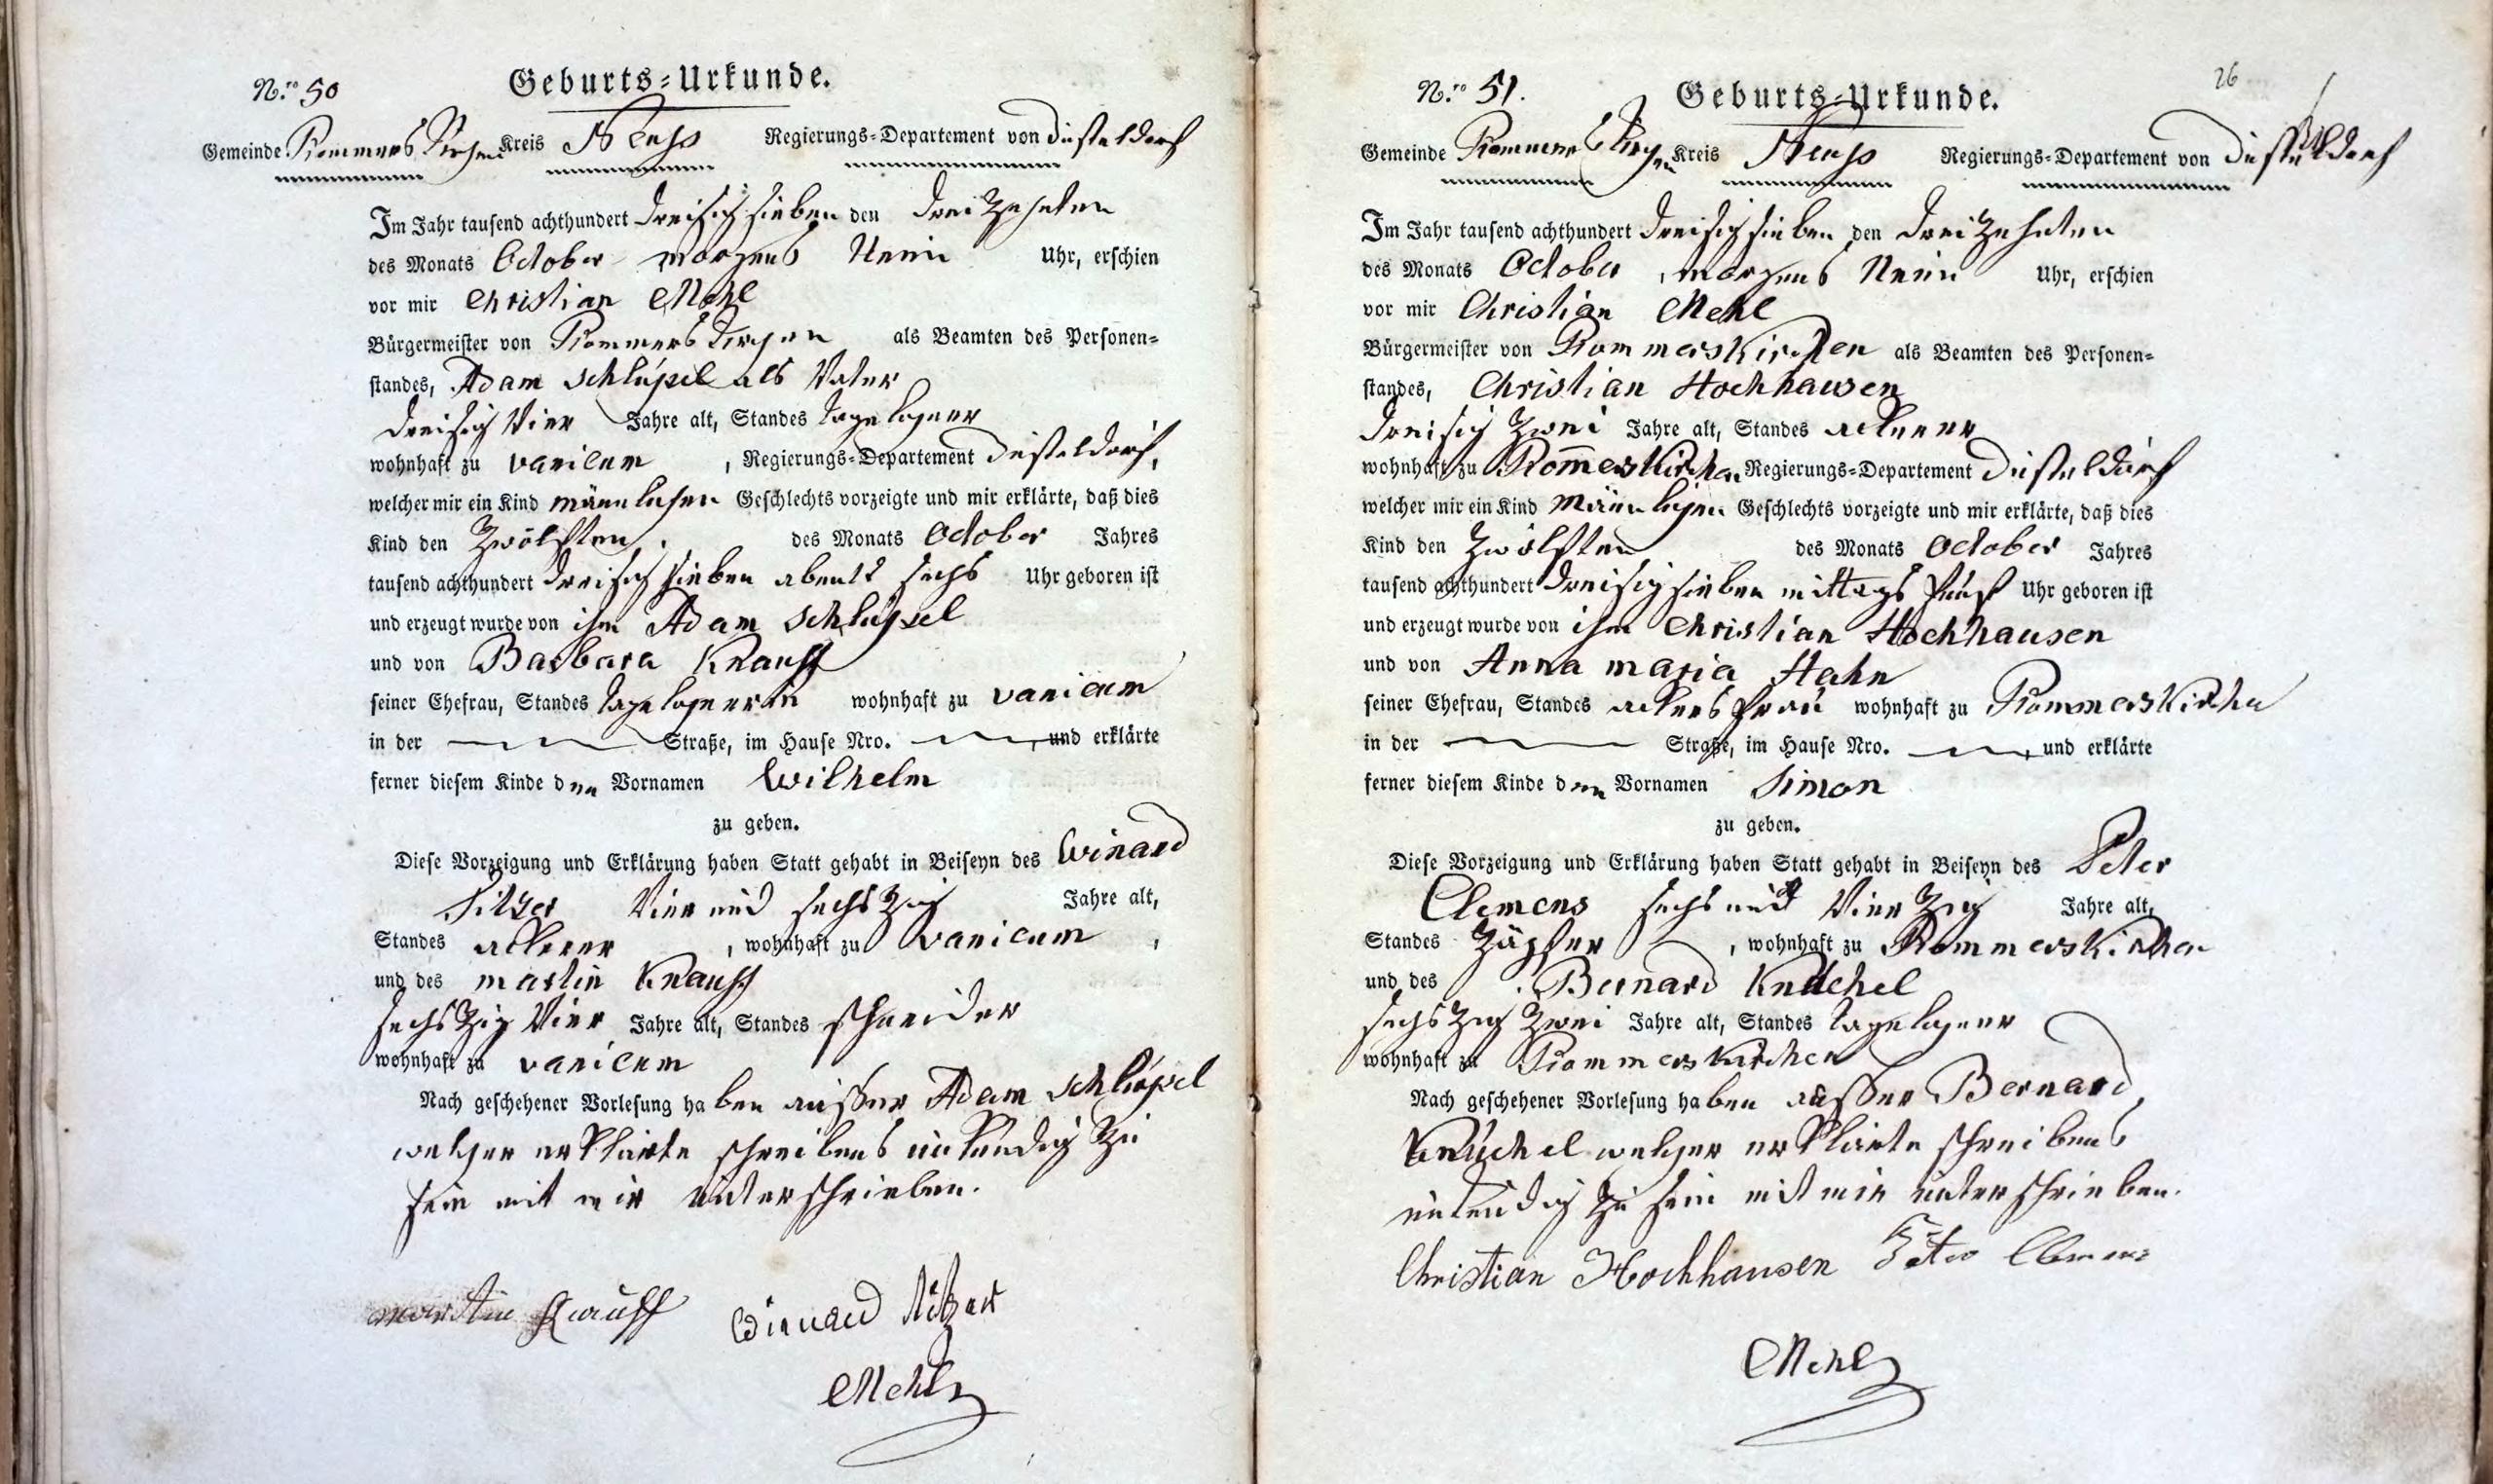 N.ro 50
Geburts-Urkunde.
Gemeinde Rommerskirchen Kreis Neuss Regierungs-Departement von Düsseldorf
Im Jahr tausend achthundert dreisig sieben den dreizehnten
des Monats October morgens Neun Uhr, erschien
vor mir Christian Mehl
Bürgermeister von Rommerskirchen als Beamten des Personen-
standes, Adam Schlüpel als Vater
dreisig Vier Jahre alt, Standes tagelohner
wohnhaft zu vanicum, Regierungs-Departement Düsseldorf,
welcher mir ein Kind männlichen Geschlechts vorzeigte und mir erklärte, daß dies
Kind den Zwölften des Monats October Jahres
tausend achthundert dreisig sieben abends sechs Uhr geboren ist
und erzeugt wurde von ihm Adam Schlüpel
und von Barbara Knauff
seiner Ehefrau, Standes tagelohnerin wohnhaft zu vanicum
in der Straße, im Hause Nro. , und erklärte
ferner diesem Kinde den Vornamen Wilhelm
zu geben.
Diese Vorzeigung und Erklärung haben Statt gehabt in Beiseyn des Winard
Sitzer Vier und sechszig Jahre alt,
Standes ackerer, wohnhaft zu vanicum,
und des martin Knauff
sechszig Vier Jahre alt, Standes schneider
wohnhaft zu vanicum
Nach geschehener Vorlesung haben ausser Adam Schlüpel
welcher erklärte schreibens unkundig zu
sein mit mir unterschrieben.
martin Knauff Winard Sitzer
Mehl
26
N.ro 51.
Geburts-Urkunde.
Gemeinde Rommerskirchen Kreis Neuss Regierungs-Departement von Düsseldorf
Im Jahr tausend achthundert dreisig sieben den dreizehnten
des Monats October, morgens Neun Uhr, erschien
vor mir Christian Mehl
Bürgermeister von Rommerskirchen als Beamten des Personen-
standes, Christian Hochhausen
dreisig zwei Jahre alt, Standes ackerer
wohnhaft zu Rom̅erskirchen Regierungs-Departement Düsseldorf
welcher mir ein Kind männlichen Geschlechts vorzeigte und mir erklärte, daß dies
Kind den Zwölften des Monats October Jahres
tausend achthundert dreisig sieben mittags fünf Uhr geboren ist
und erzeugt wurde von ihm Christian Hochhausen
und von Anna maria Hahn
seiner Ehefrau, Standes ackersfrau wohnhaft zu Rommerskirchen
in der Straße, im Hause Nro. , und erklärte
ferner diesem Kinde den Vornamen Simon
zu geben.
Diese Vorzeigung und Erklärung haben Statt gehabt in Beiseyn des Peter
Clemens sechs und Vierzig Jahre alt,
Standes Zäpfer, wohnhaft zu Rommerskirchen
und des Bernard Knüchel
sechszig zwei Jahre alt, Standes tagelohner
wohnhaft zu Rommerskirchen
Nach geschehener Vorlesung haben ausser Bernard
Knüchel welcher erklärte schreibens
unkundig zu sein mit mir unterschrieben.
Christian Hochhausen Peter Clemens
Mehl